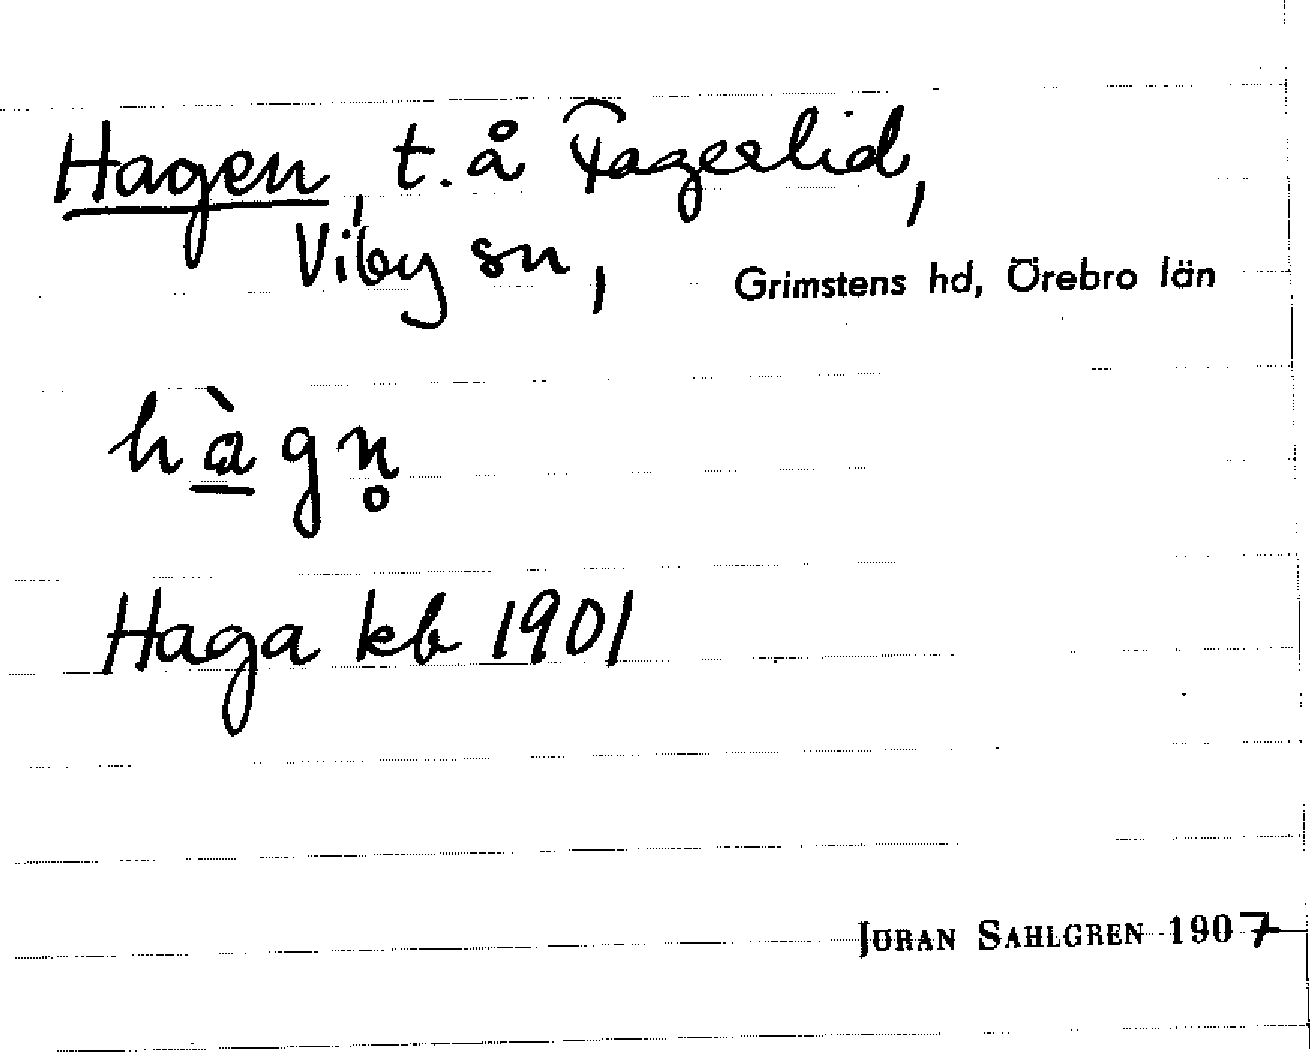 Hagen, t. å Fagerlid,
Viby sn, Grimstens hd, Örebro län
hà̲gn̥
Haga kb 1901
JÖRAN SAHLGREN 1907